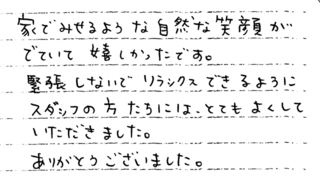 家でみせるような自然な笑顔が
でていて嬉しかったです。
緊張しないでリラックスできるように
スタッフの方たちには、とてもよくして
いただきました。
ありがとうございました。